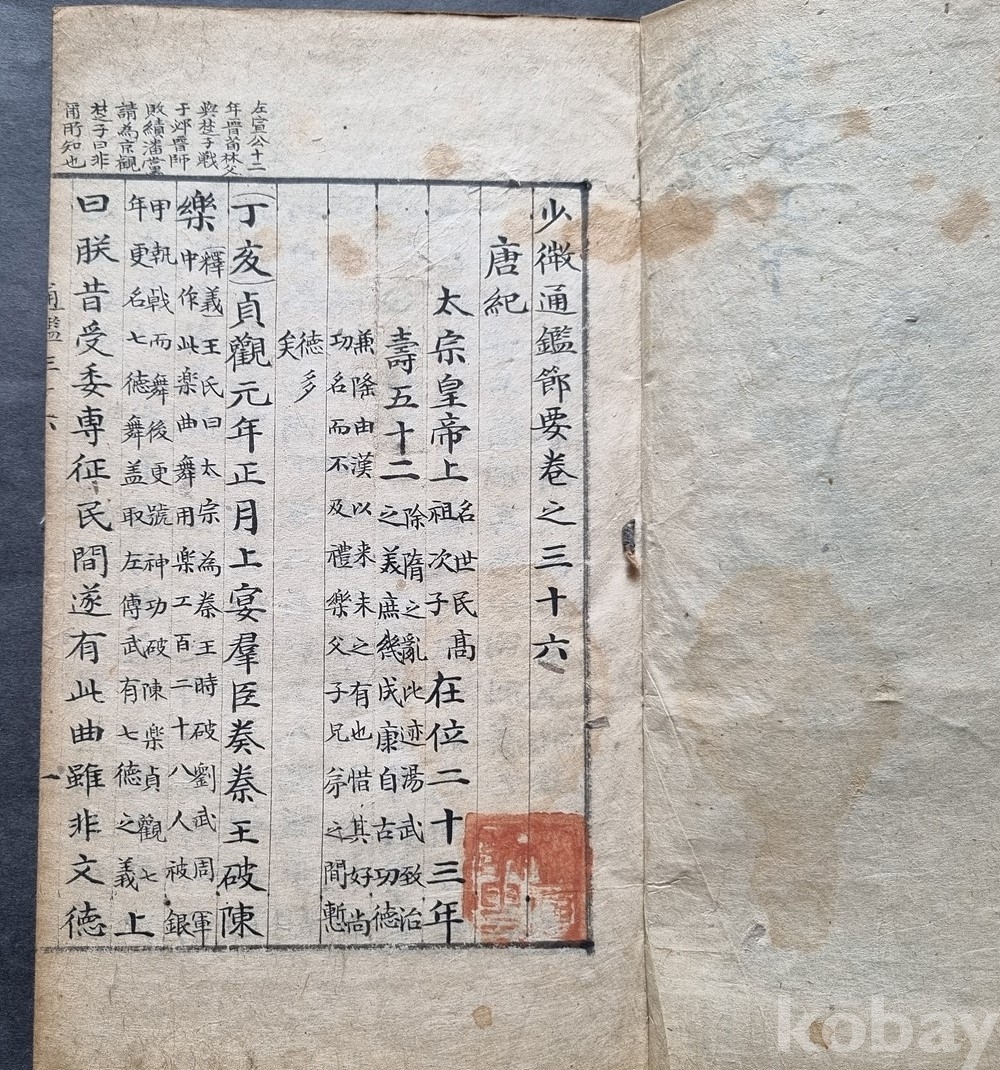 左宣公十二
年晋荀林父
與楚子戰
于邲晋師
敗績潘黨
請為京觀
楚子曰非
爾所知也
少微通鑑節要卷之三十六
唐紀
太宗皇帝上名世民高祖次子在位二十三年
壽五十二除隋之亂比迹湯武致治之美庶幾成康自古功德
兼隆由漢以来未之有也惜其好尚功名而不及禮樂父子兄弟之間慙
德多矣
(丁亥)貞觀元年正月上宴羣臣奏秦王破陳
樂(釋義)王氏曰太宗為秦王時破劉武周軍中作此楽曲舞用楽工百二十八人被銀
甲執戟而舞後更號神功破陳楽貞觀七年更名七德舞盖取左傳武有七德之義上
曰朕昔受委専征民間遂有此曲雖非文德
通鑑三十六 一
kobay